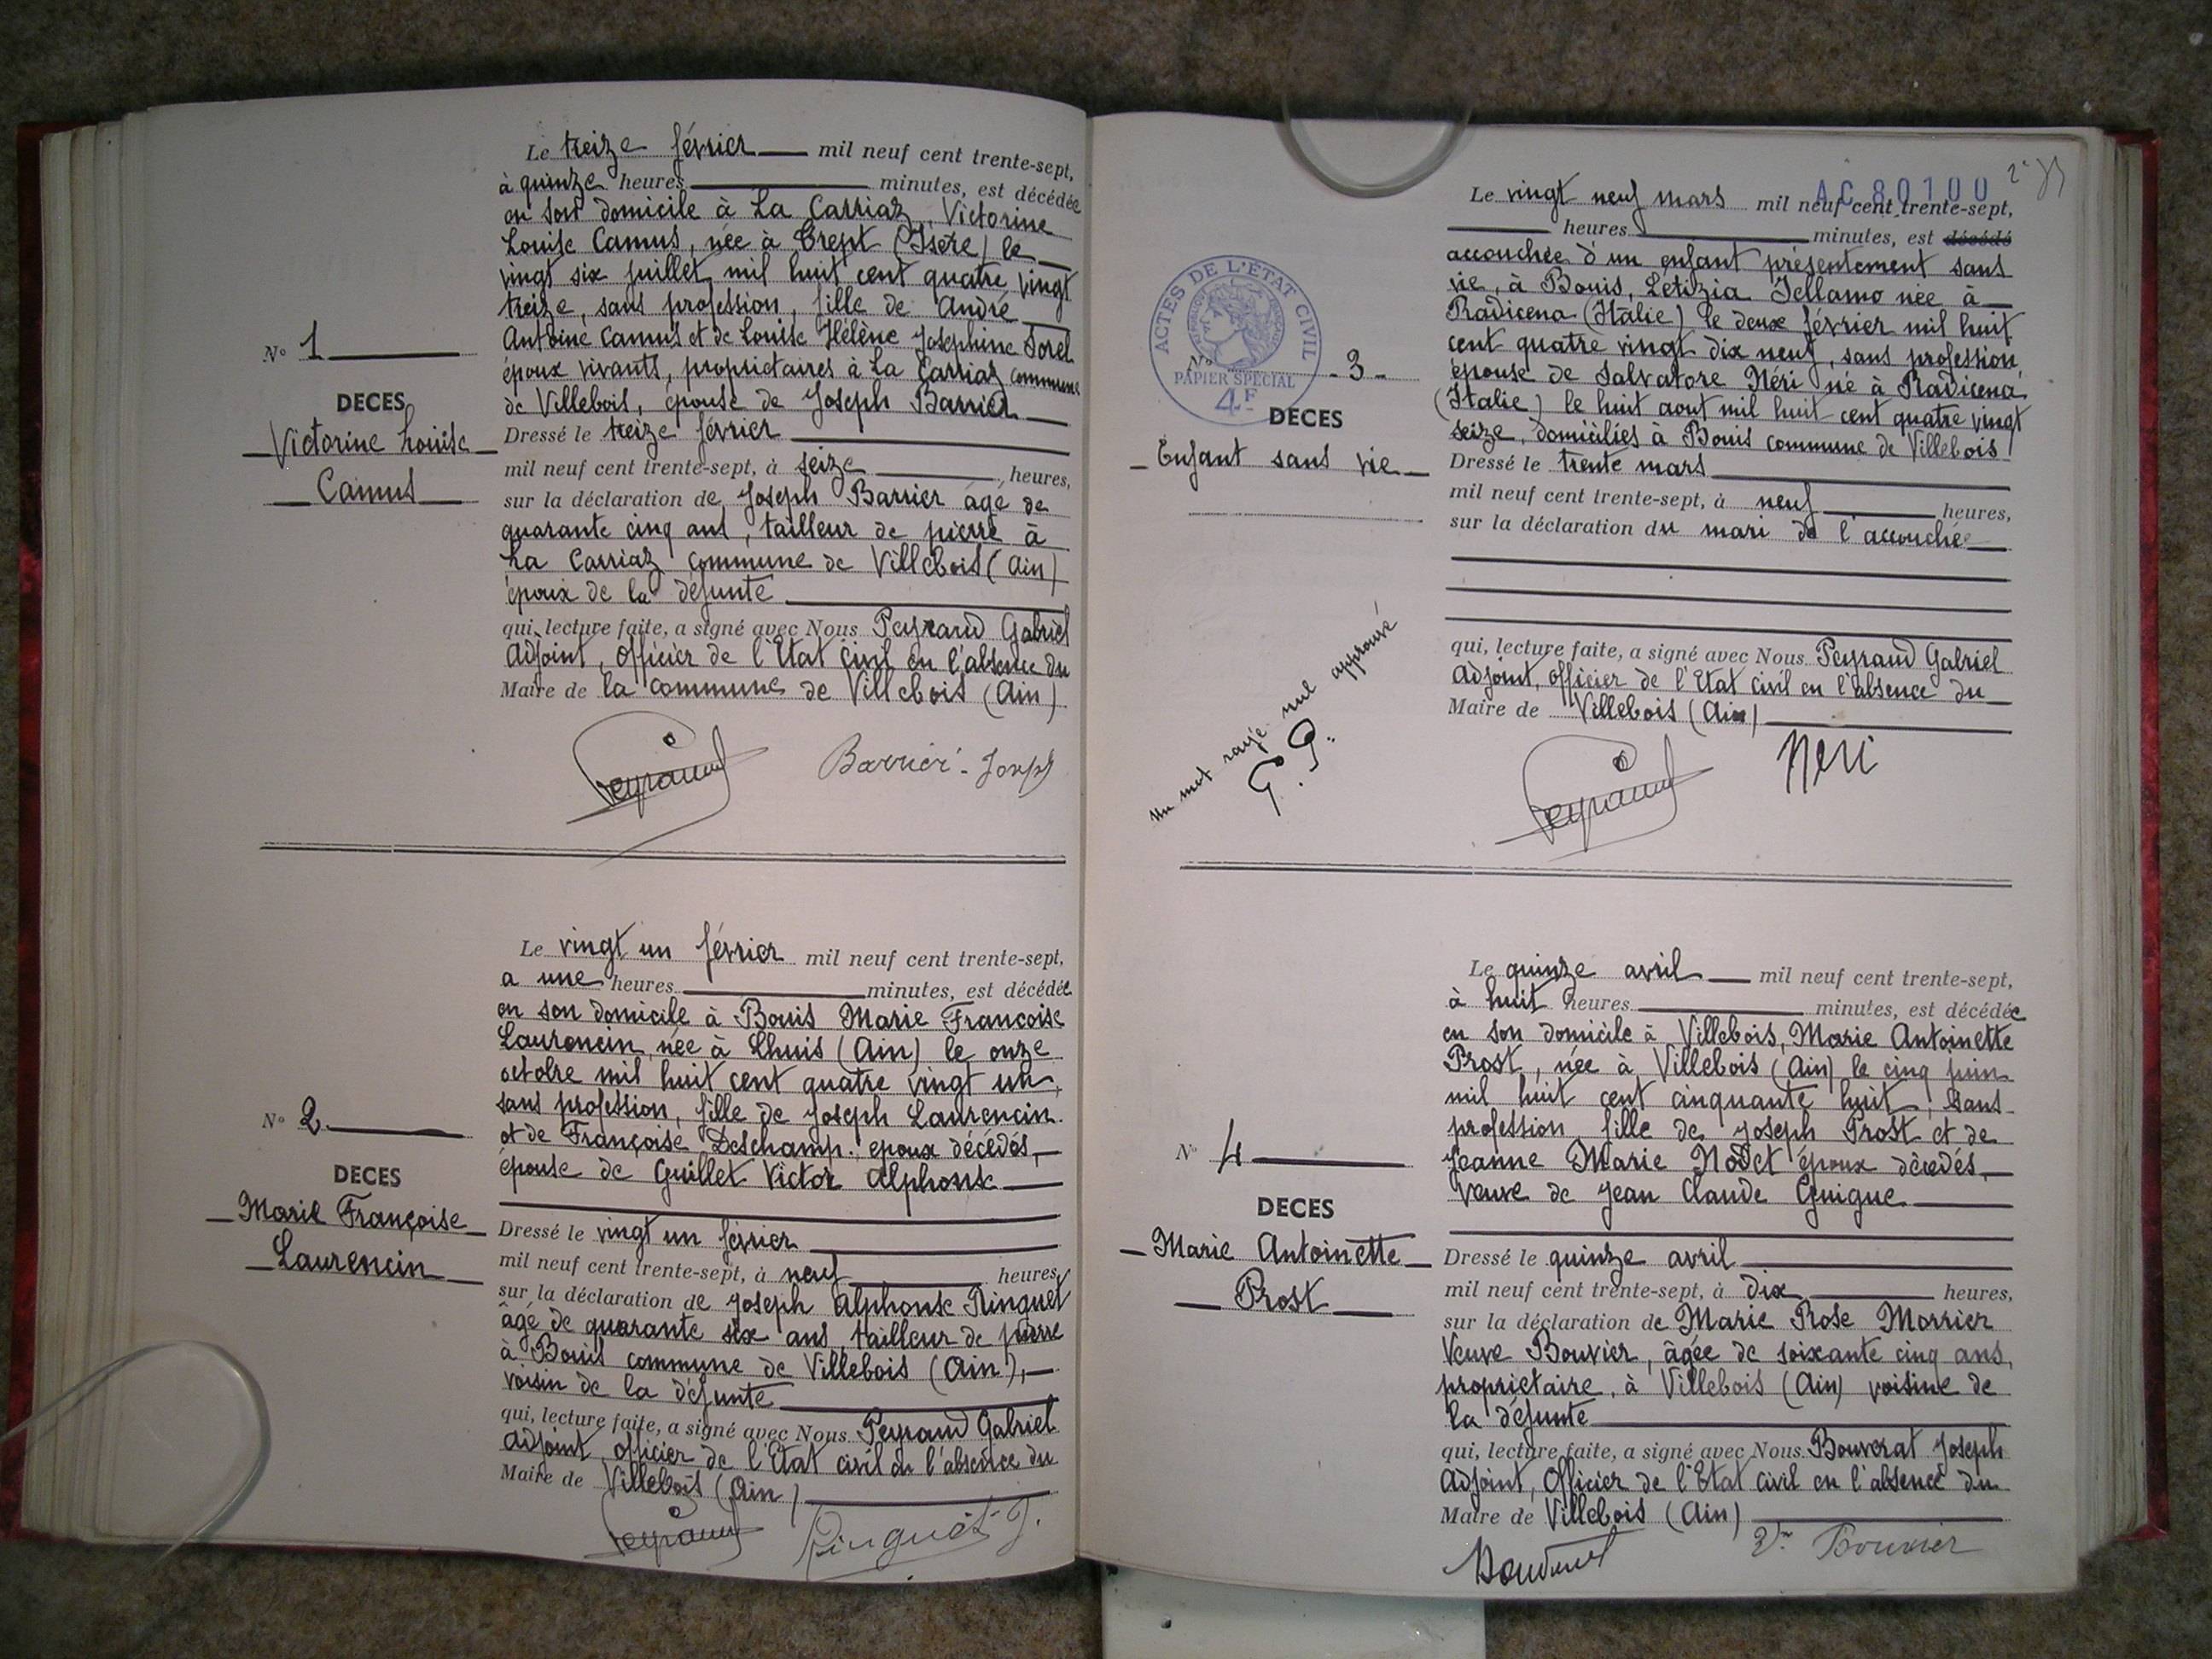 Le treize février mil neuf cent trente-sept,
à quinze heures minutes, est décédée
en son domicile à La Carriaz, Victorine
Louise Camus, née à Crept (Isère) le
vingt six juillet mil huit cent quatre vingt
treize, sans profession, fille de André
Antoine Camus et de Louise Hélène Joséphine Sorel
époux vivants, propriétaires à La Carriaz commune
de Villebois, épouse de Joseph Barrier
Dressé le treize février
mil neuf cent trente-sept, à seize heures,
sur la déclaration de Joseph Barrier âgé de
quarante cinq ans, tailleur de pierre à
La Carriaz commune de Villebois (Ain)
époux de la défunte
qui, lecture faite, a signé avec Nous Peyraud Gabriel
Adjoint, Officier de l'Etat Civil en l'absence du
Maire de la commune de Villebois (Ain)
N° 1
DECES
Victorine Louise
Camus
Peyraud Barrier Joseph
Le vingt un février mil neuf cent trente-sept,
a une heures minutes, est décédée
en son domicile à Bouis Marie Françoise
Laurencin, née à Lhuis (Ain) le onze
octobre mil huit cent quatre vingt un,
sans profession, fille de Joseph Laurencin
et de Françoise Deschamp. époux décédés,
épouse de Guillet Victor Alphonse
Dressé le vingt un février
mil neuf cent trente-sept, à neuf heures,
sur la déclaration de Joseph Alphonse Ringuet
âgé de quarante six ans, tailleur de pierre
à Bouis commune de Villebois (Ain),
voisin de la défunte
qui, lecture faite, a signé avec Nous Peyraud Gabriel
Adjoint, officier de l'Etat civil en l'absence du
Maire de Villebois (Ain)
N° 2
DECES
Marie Françoise
Laurencin
Peyraud Ringuet J.
AC 80100
Le vingt neuf mars mil neuf cent trente-sept,
heures minutes, est décédé
accouchée d'un enfant présentement sans
vie, à Bouis, Létizia Iellamo née à
Radicena (Italie) le deux février mil huit
cent quatre vingt dix neuf, sans profession,
épouse de Salvatore Néri né à Radicena
(Italie) le huit aout mil huit cent quatre vingt
seize, domiciliés à Bouis commune de Villebois
Dressé le trente mars
mil neuf cent trente-sept, à neuf heures,
sur la déclaration du mari de l'accouchée
qui, lecture faite, a signé avec Nous Peyraud Gabriel
Adjoint, officier de l'Etat Civil en l'absence du
Maire de Villebois (Ain)
ACTES DE L'ÉTAT CIVIL
PAPIER SPÉCIAL
4F
N° -3-
DECES
Enfant sans vie
Un mot rayé nul approuvé
G. P.
Peyraud Neri
Le quinze avril mil neuf cent trente-sept,
à huit heures minutes, est décédée
en son domicile à Villebois, Marie Antoinette
Prost, née à Villebois (Ain) le cinq juin
mil huit cent cinquante huit, sans
profession fille de Joseph Prost et de
Jeanne Marie Nodet époux décédés,
veuve de Jean Claude Guigue
Dressé le quinze avril
mil neuf cent trente-sept, à dix heures,
sur la déclaration de Marie Rose Morrier
Veuve Bouvier, âgée de soixante cinq ans,
propriétaire, à Villebois (Ain) voisine de
la défunte
qui, lecture faite, a signé avec Nous Bouverat Joseph
Adjoint, Officier de l'Etat Civil en l'absence du
Maire de Villebois (Ain)
N° 4
DECES
Marie Antoinette
Prost
Vve Bouvier